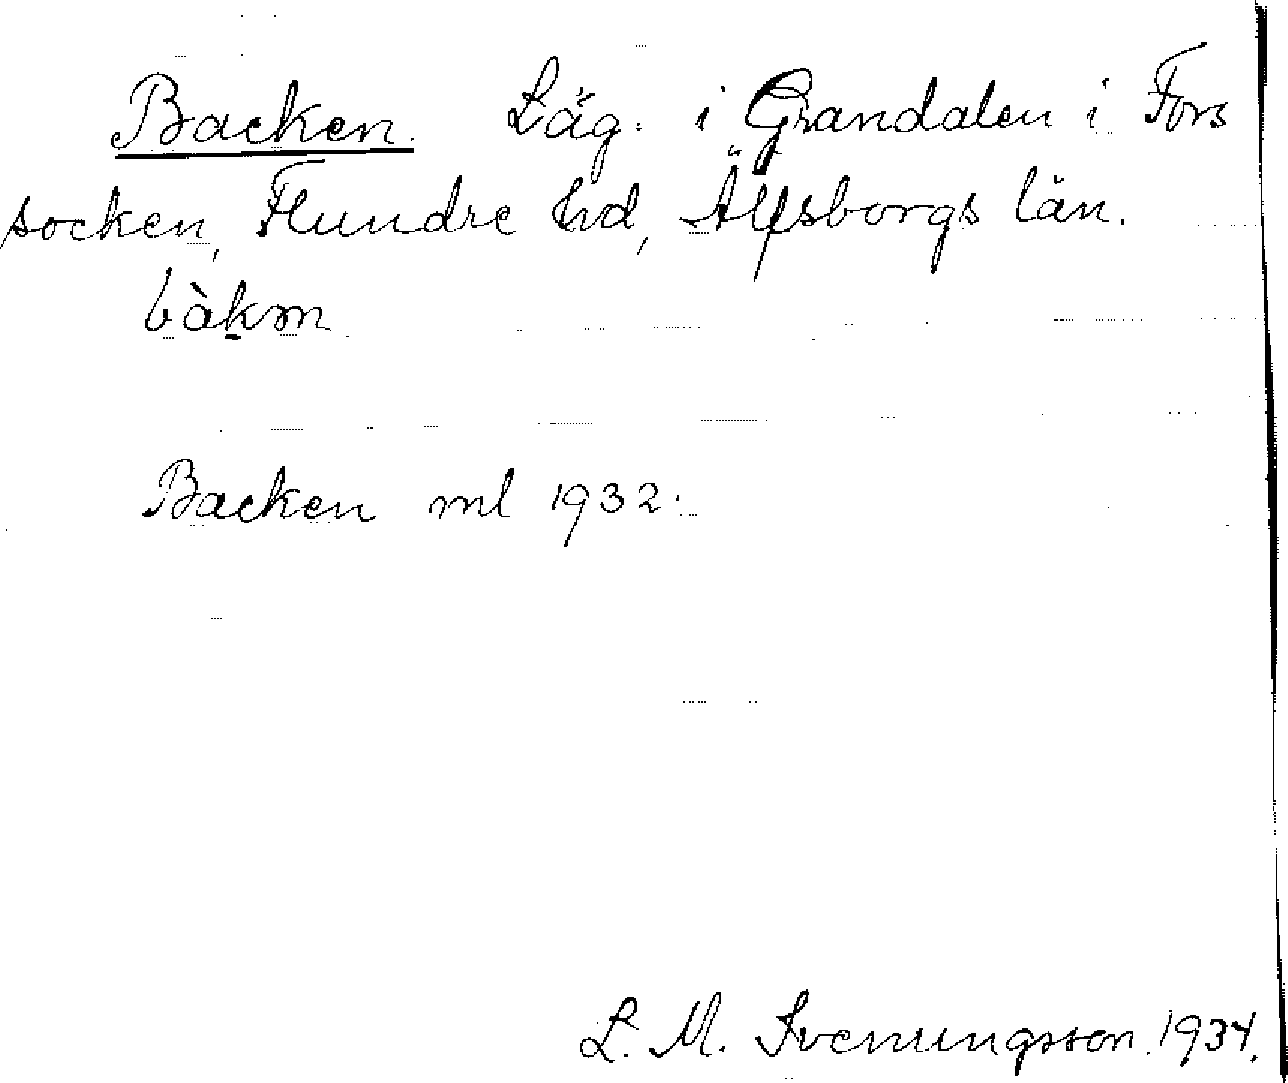 Backen. Läg. i Grandalen i Fors
socken, Flundre hd, Älfsborgs län.
bàkm
Backen ml 1932:
L. M. Svenungsson. 1934.